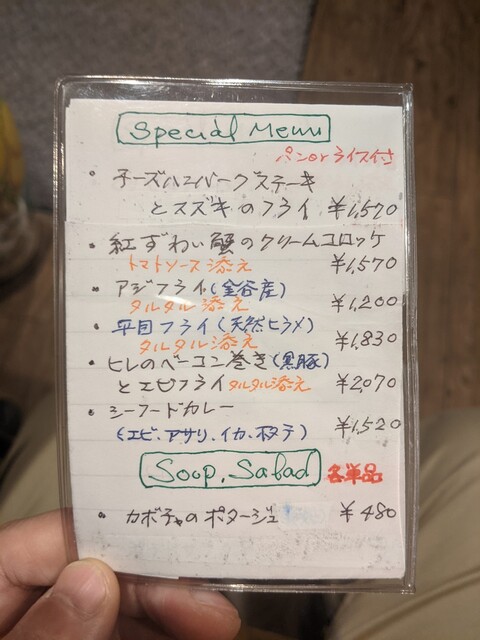 Special Menu
パンorライス付
• チーズハンバーグステーキ
とスズキのフライ ¥1,570
• 紅ずわい蟹のクリームコロッケ
トマトソース添え ¥1,570
• アジフライ(金谷産)
タルタル添え ¥1,200
• 平目フライ(天然ヒラメ)
タルタル添え ¥1,830
• ヒレのベーコン巻き(黒豚)
とエビフライタルタル添え ¥2,070
• シーフードカレー
(エビ、アサリ、イカ、ホタテ) ¥1,520
Soop, Salad 各単品
• カボチャのポタージュ ¥480